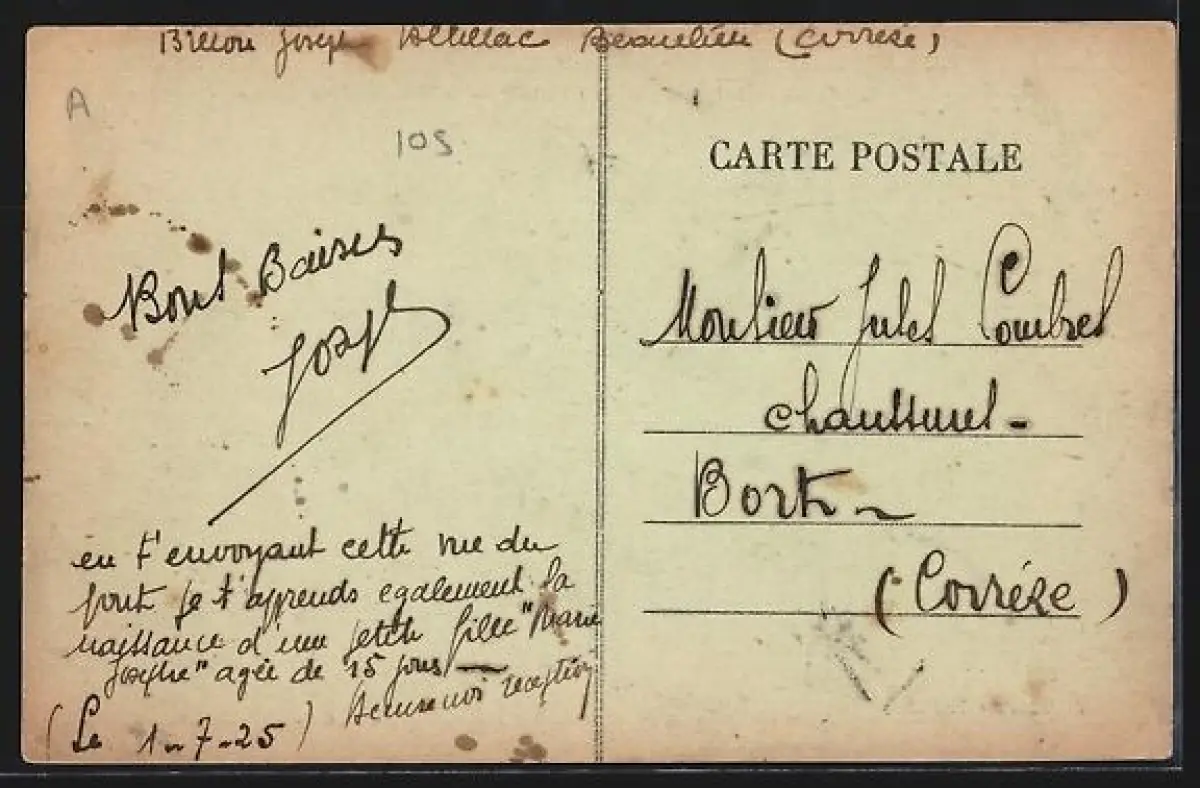 Joseph Altillac Beaulieu (Corrèze)
A
105
CARTE POSTALE
Bons Baisers
Joseph
Monsieur Jules Combes
Bort
(Corrèze)
en t'envoyant cette vue du
pont je t'apprends egalement la
naissance d'une petite fille "Marie
Josephe" agée de 15 jours
(Le 1-7-25) Accuse moi reception